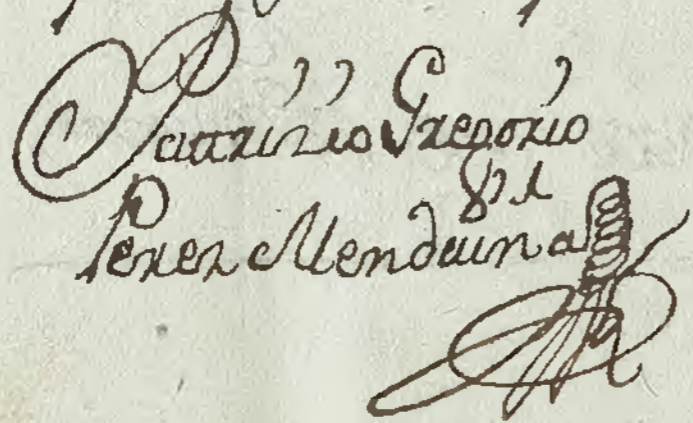 Pattrizio Gregorio
Perez Mendauina